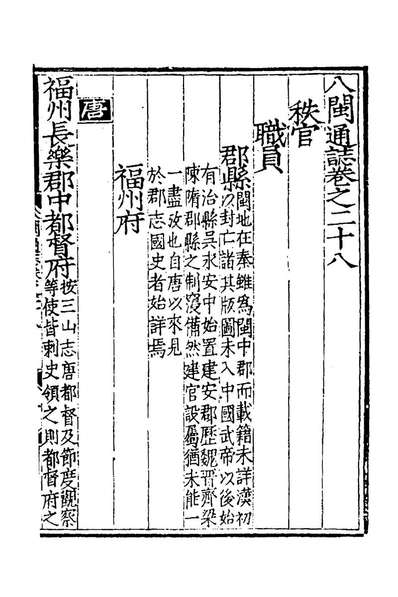 八閩通誌卷之二十八
秩官
職員
郡縣
閩地在秦雖爲閩中郡而載籍未詳漢初
以封亡諸其版圖未入中國武帝以後始
有治縣吳永安中始置建安郡歷魏晉齊梁
陳隋郡縣之制寖備然建官設屬猶未能一
一盡攷也自唐以來見
於郡志國史者始詳焉
福州府
唐
福州長樂郡中都督府
按三山志唐都督及節度觀察
等使皆刺史領之則都督府之